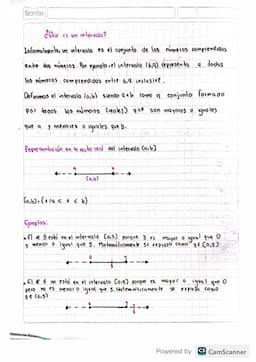 Scribe
¿Que es un intervalo?
Informalmente, un intervalo es el conjunto de los números comprendidos
entre dos números. Por ejemplo: el intervalo representa a todos
los números comprendidos entre inclusive.
Definimos el intervalo [a,b] siendo a<b como el conjunto formado
por todos los números (reales) que son mayores o iguales
que a y menores o iguales que b.
Representación en la recta real del intervalo [a,b]
[a,b]
Ejemplos:
El # 3 está en el intervalo [0,5] porque 3 es mayor o igual que 0
y menor o igual que 5. Matemáticamente se expresa como
El # 6 no está en el intervalo [0,5] porque es mayor o igual que 0
pero no es menor o igual que 5. Matemáticamente se expresa como
Powered by CS CamScanner